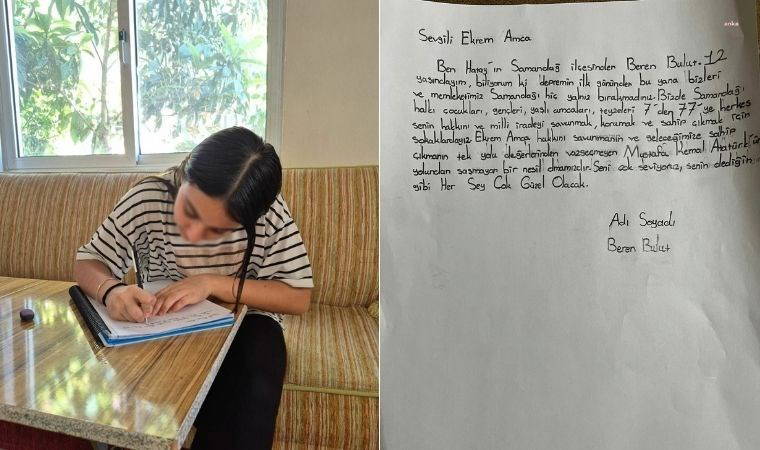 anka
Sevgili Ekrem Amca
Ben Hatay'ın Samandağ ilçesinden Beren Bulut. 12
yaşındayım, biliyorum ki depremin ilk gününden bu yana bizleri
ve memleketimiz Samandağı hiç yalnız bırakmadınız. Bizde Samandağ
halkı çocukları, gençleri, yaşlı amcaları, teyzeleri 7'den 77'ye herkes
senin hakkını ve milli iradeyi savunmak, korumak ve sahip çıkmak için
sokaklardayız Ekrem Amca hakkını savunmanın ve geleceğimize sahip
çıkmanın tek yolu değerlerinden vazgeçmeyen Mustafa Kemal Atatürk'ün
yolundan şaşmayan bir nesil olmamızdır. Seni çok seviyoruz, senin dediğin
gibi Her Şey Çok Güzel Olacak.
Adı Soyadı
Beren Bulut